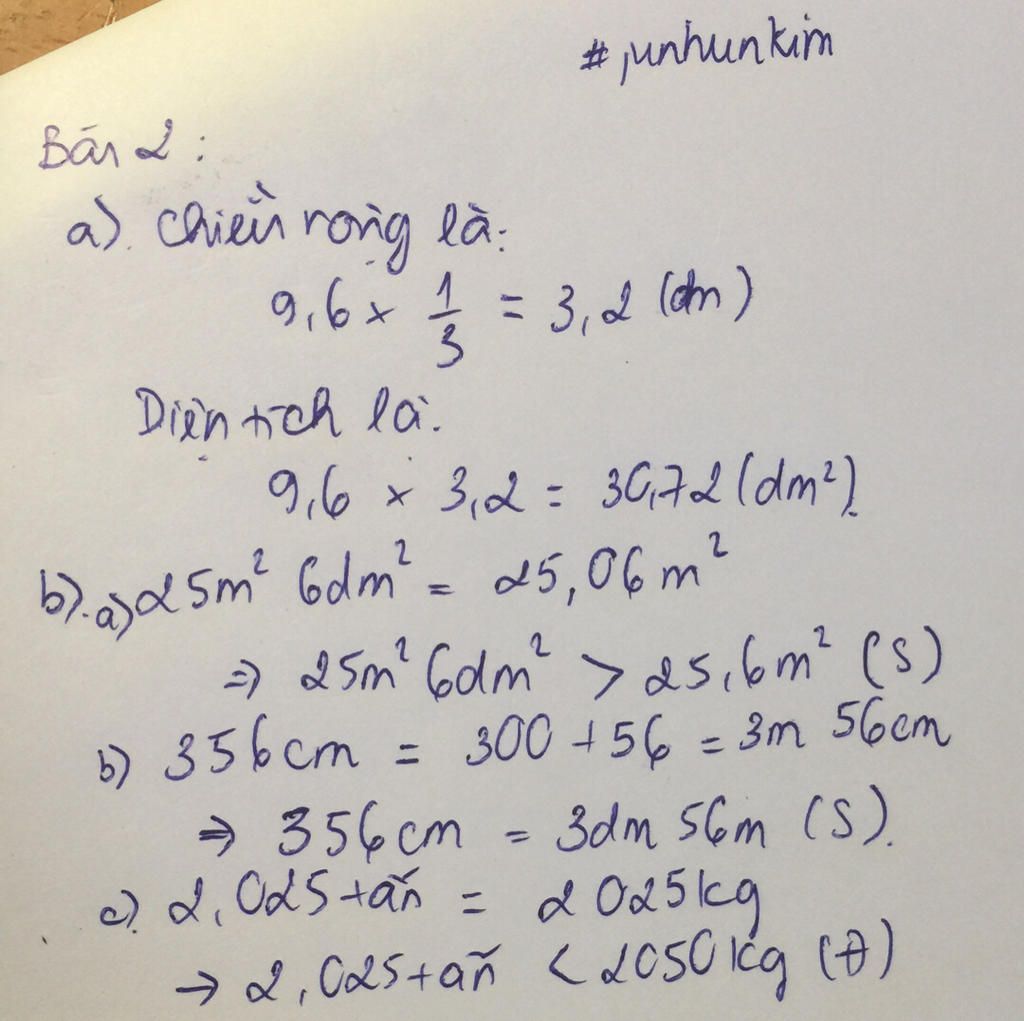 #junhunkim
Bài 2 :
a). chiều rộng là:
9,6 × 1/3 = 3,2 (dm)
Diện tích là:
9,6 × 3,2 = 30,72 (dm²).
b). a) 25m² 6dm² = 25,06 m²
⇒ 25m² 6dm² > 25,6m² (S)
b) 356cm = 300 + 56 = 3m 56cm
⇒ 356cm = 3dm 56m (S).
c) 2,025 tấn = 2025kg
→ 2,025 tấn < 2050kg (Đ)